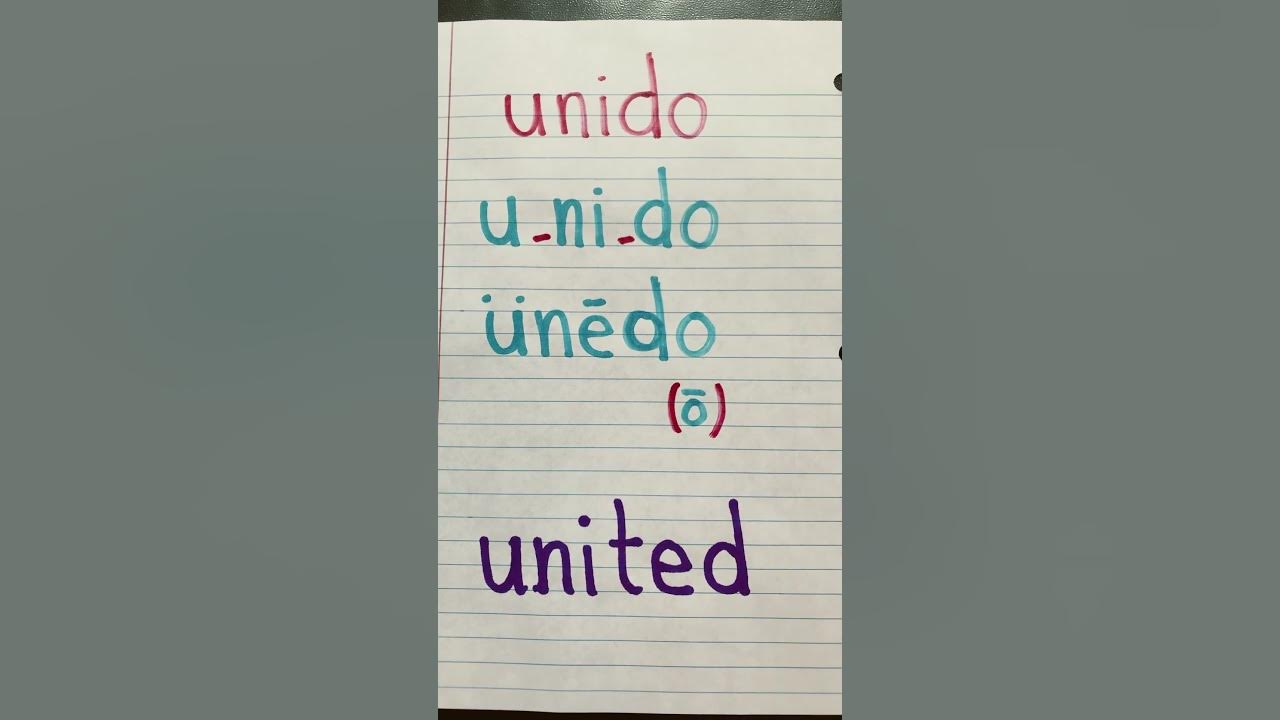 unido
u-ni-do
ünēdo
(ō)
united